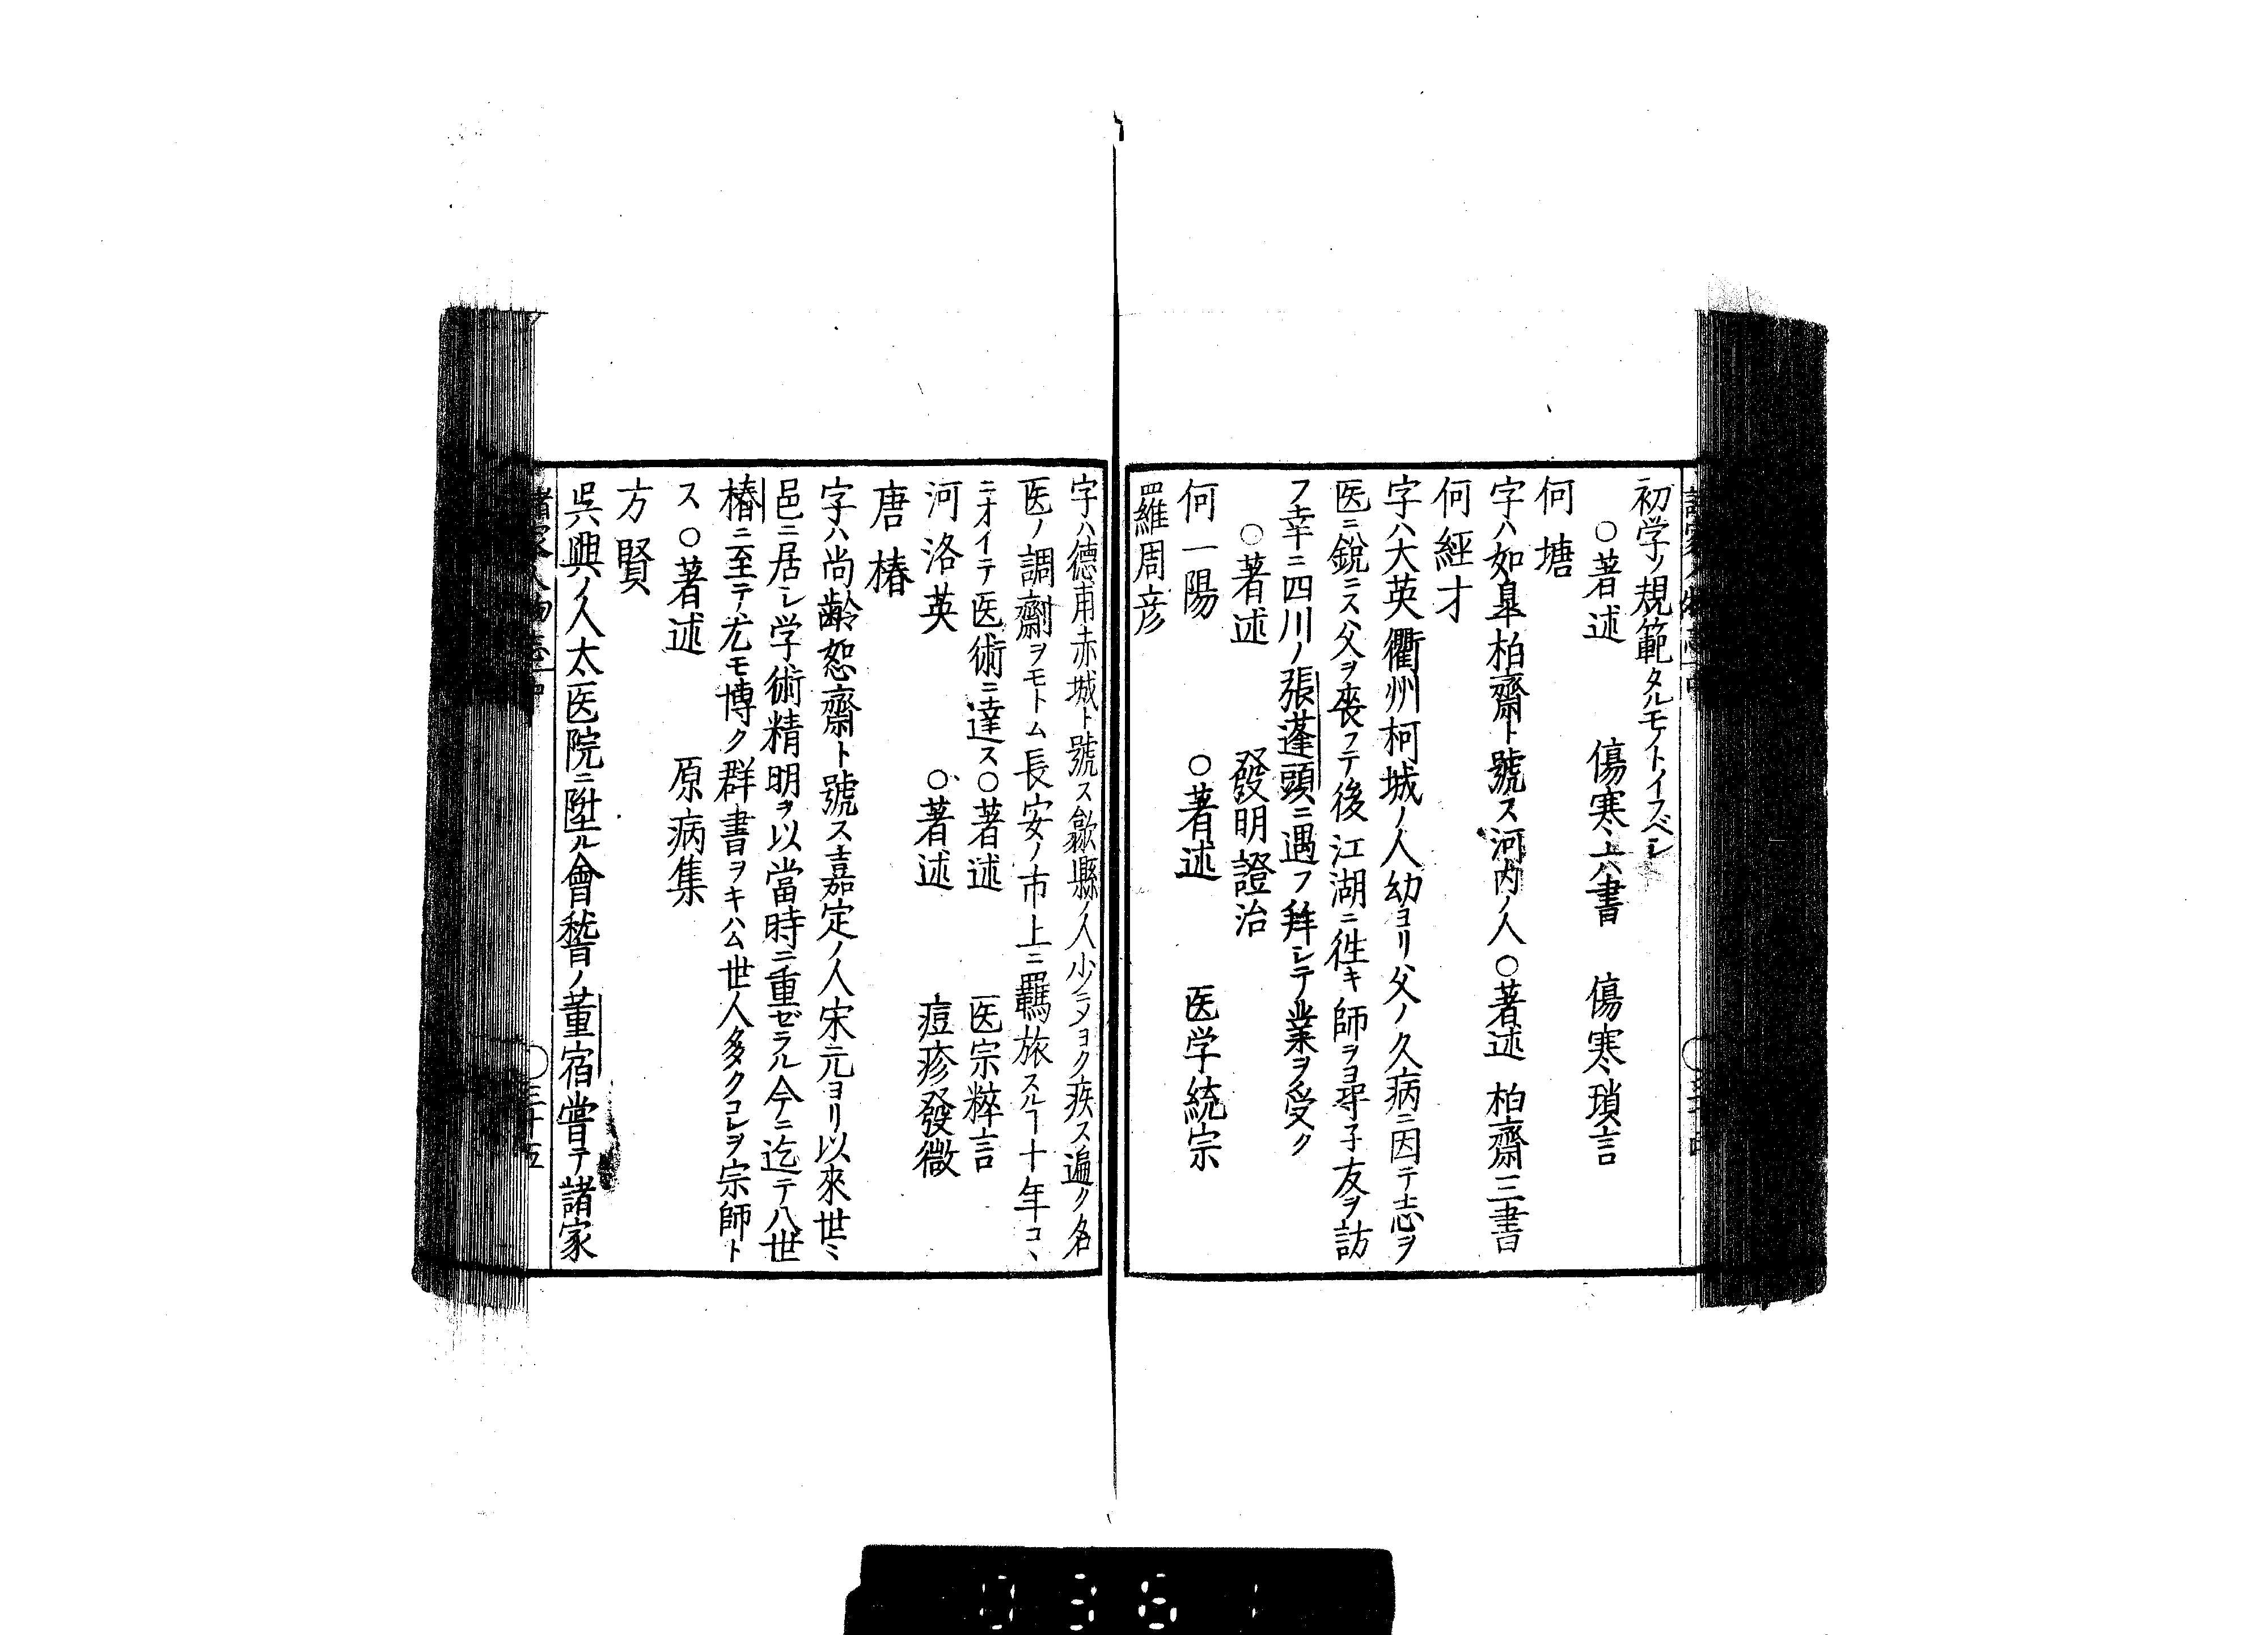 初学ノ規範タルモノトイフベシ
○著述　傷寒六書　傷寒瑣言
何塘
字ハ如皐柏齋ト號ス河内ノ人○著述　柏齋三書
何經才
字ハ大英衢州柯城ノ人幼ヨリ父ノ久病ニ因テ志ヲ
医ニ銳ニス父ヲ喪フテ後江湖ニ徃キ師ヲヨ尋子友ヲ訪
フ幸ニ四川ノ張蓬頭ニ遇フ拜シテ業ヲ受ク
○著述　發明證治
何一陽　○著述　医学統宗
羅周彦
字ハ德甫赤城ト號ス歙縣ノ人少ニメヨク疾ス遍ク名
医ノ調劑ヲモトム長安ノ市上ニ羈旅スルヿ十年コヽ
ニオイテ医術ニ達ス○著述　医宗粹言
河洛英　○著述　痘疹發微
唐椿
字ハ尚齢恕齋ト號ス嘉定ノ人宋元ヨリ以來世ミ
邑ニ居シ学術精明ヲ以當時ニ重ゼラル今ニ迄テ八世
椿ニ至テ尤モ博ク群書ヲキハム世人多クコレヲ宗師ト
ス○著述　原病集
方賢
呉興ノ人太医院ニ陞ル會嵆ノ董宿嘗テ諸家
諸家人物志
三十五
0361